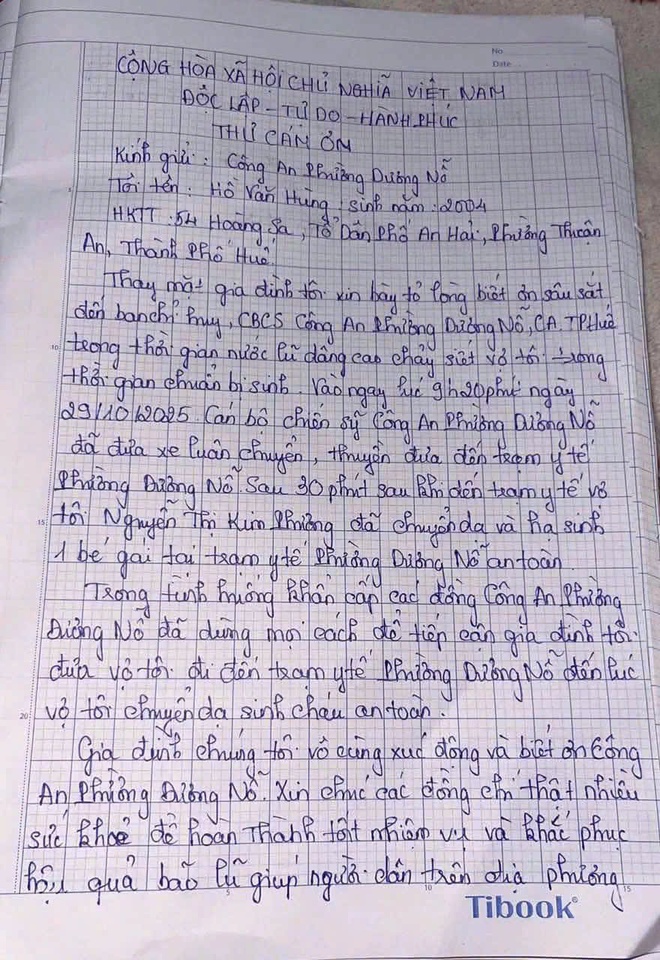 No
Date
CỘNG HÒA XÃ HỘI CHỦ NGHĨA VIỆT NAM
ĐỘC LẬP - TỰ DO - HẠNH PHÚC
THƯ CẢM ƠN
Kính gửi : Công An Phường Dương Nỗ
Tôi tên : Hồ Văn Hùng ; sinh năm : 2004
HKTT : 54 Hoàng Sa, Tổ Dân Phố An Hải, Phường Thuận
An, Thành Phố Huế.
Thay mặt gia đình tôi xin bày tỏ lòng biết ơn sâu sắt
đến ban chỉ huy, CBCS Công An Phường Dương Nỗ, CA.TP Huế
trong thời gian nước lũ dâng cao chảy siết vợ tôi trong
thời gian chuẩn bị sinh. Vào ngay lúc 9h20 phút ngày
29/10/2025 Cán bộ chiến sỹ Công An Phường Dương Nỗ
đã đưa xe luân chuyển, thuyền đưa đến trạm y tế
Phường Dương Nỗ. Sau 30 phút sau khi đến trạm y tế vợ
tôi Nguyễn Thị Kim Phường đã chuyển dạ và hạ sinh
1 bé gái tại trạm y tế Phường Dương Nỗ an toàn.
Trong tình huống khẩn cấp các đồng Công An Phường
Dương Nỗ đã dùng mọi cách để tiếp cận gia đình tôi
đưa vợ tôi đi đến trạm y tế Phường Dương Nỗ đến lúc
vợ tôi chuyển dạ sinh cháu an toàn.
Gia đình chúng tôi vô cùng xúc động và biết ơn Công
An Phường Dương Nỗ. Xin chúc các đồng chí thật nhiều
sức khoẻ để hoàn thành tốt nhiệm vụ và khắc phục
hậu quả bão lũ giúp người dân trên địa phương
5
10
15
20
10
15
Tibook